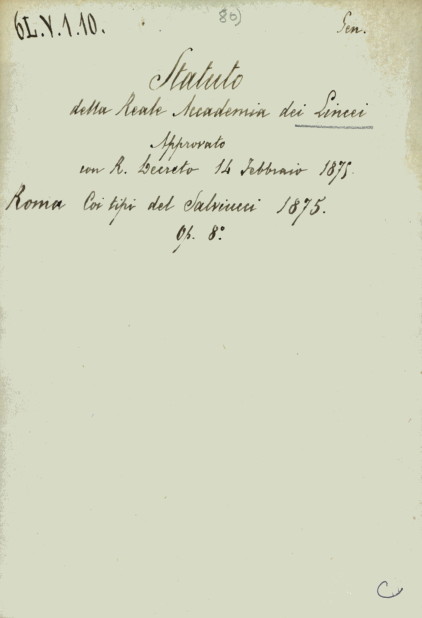 6L.V.1.10.
86)
Gen.
Statuto
della Reale Accademia dei Lincei
Approvato
con R. Decreto 14 Febbraio 1875.
Roma Coi tipi del Salviucci 1875.
Op. 8°.
C